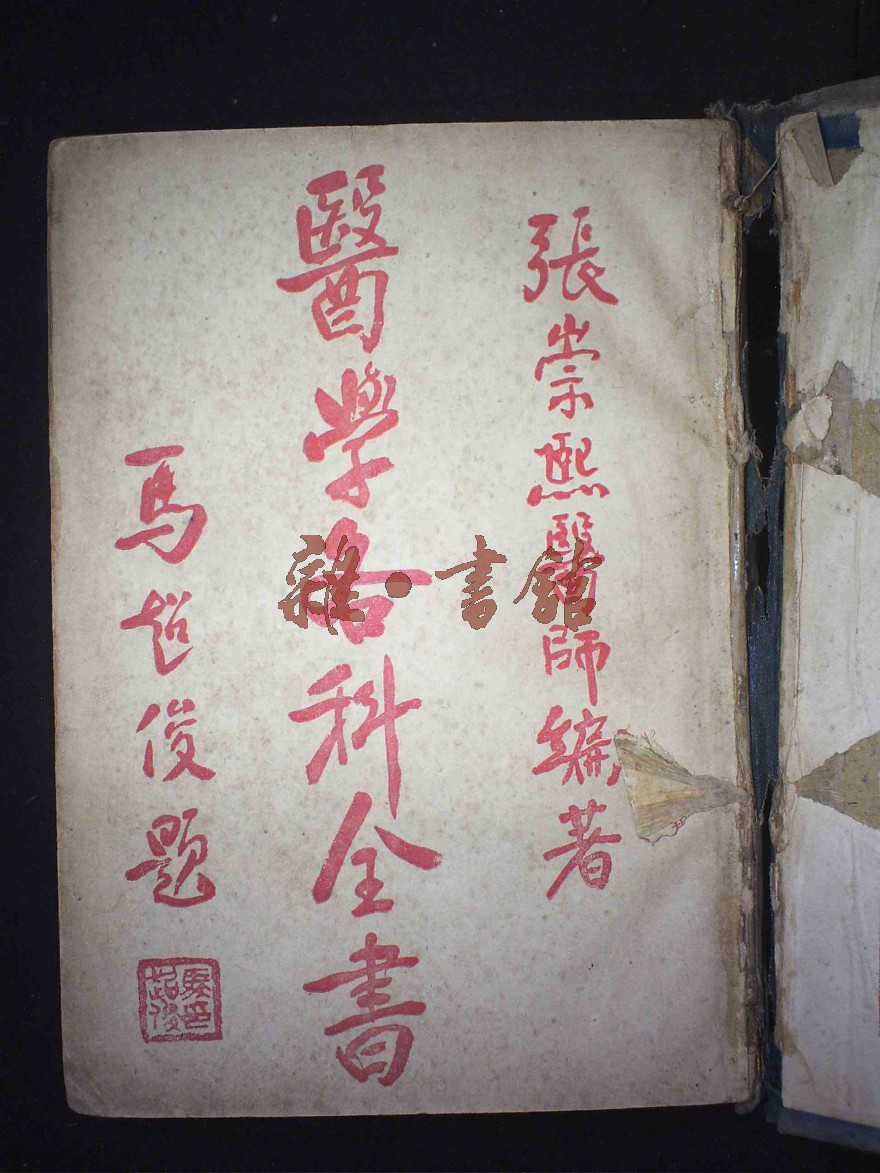 張崇熙醫師編著
醫學各科全書
馬超俊題
馬超俊印
雜·書館